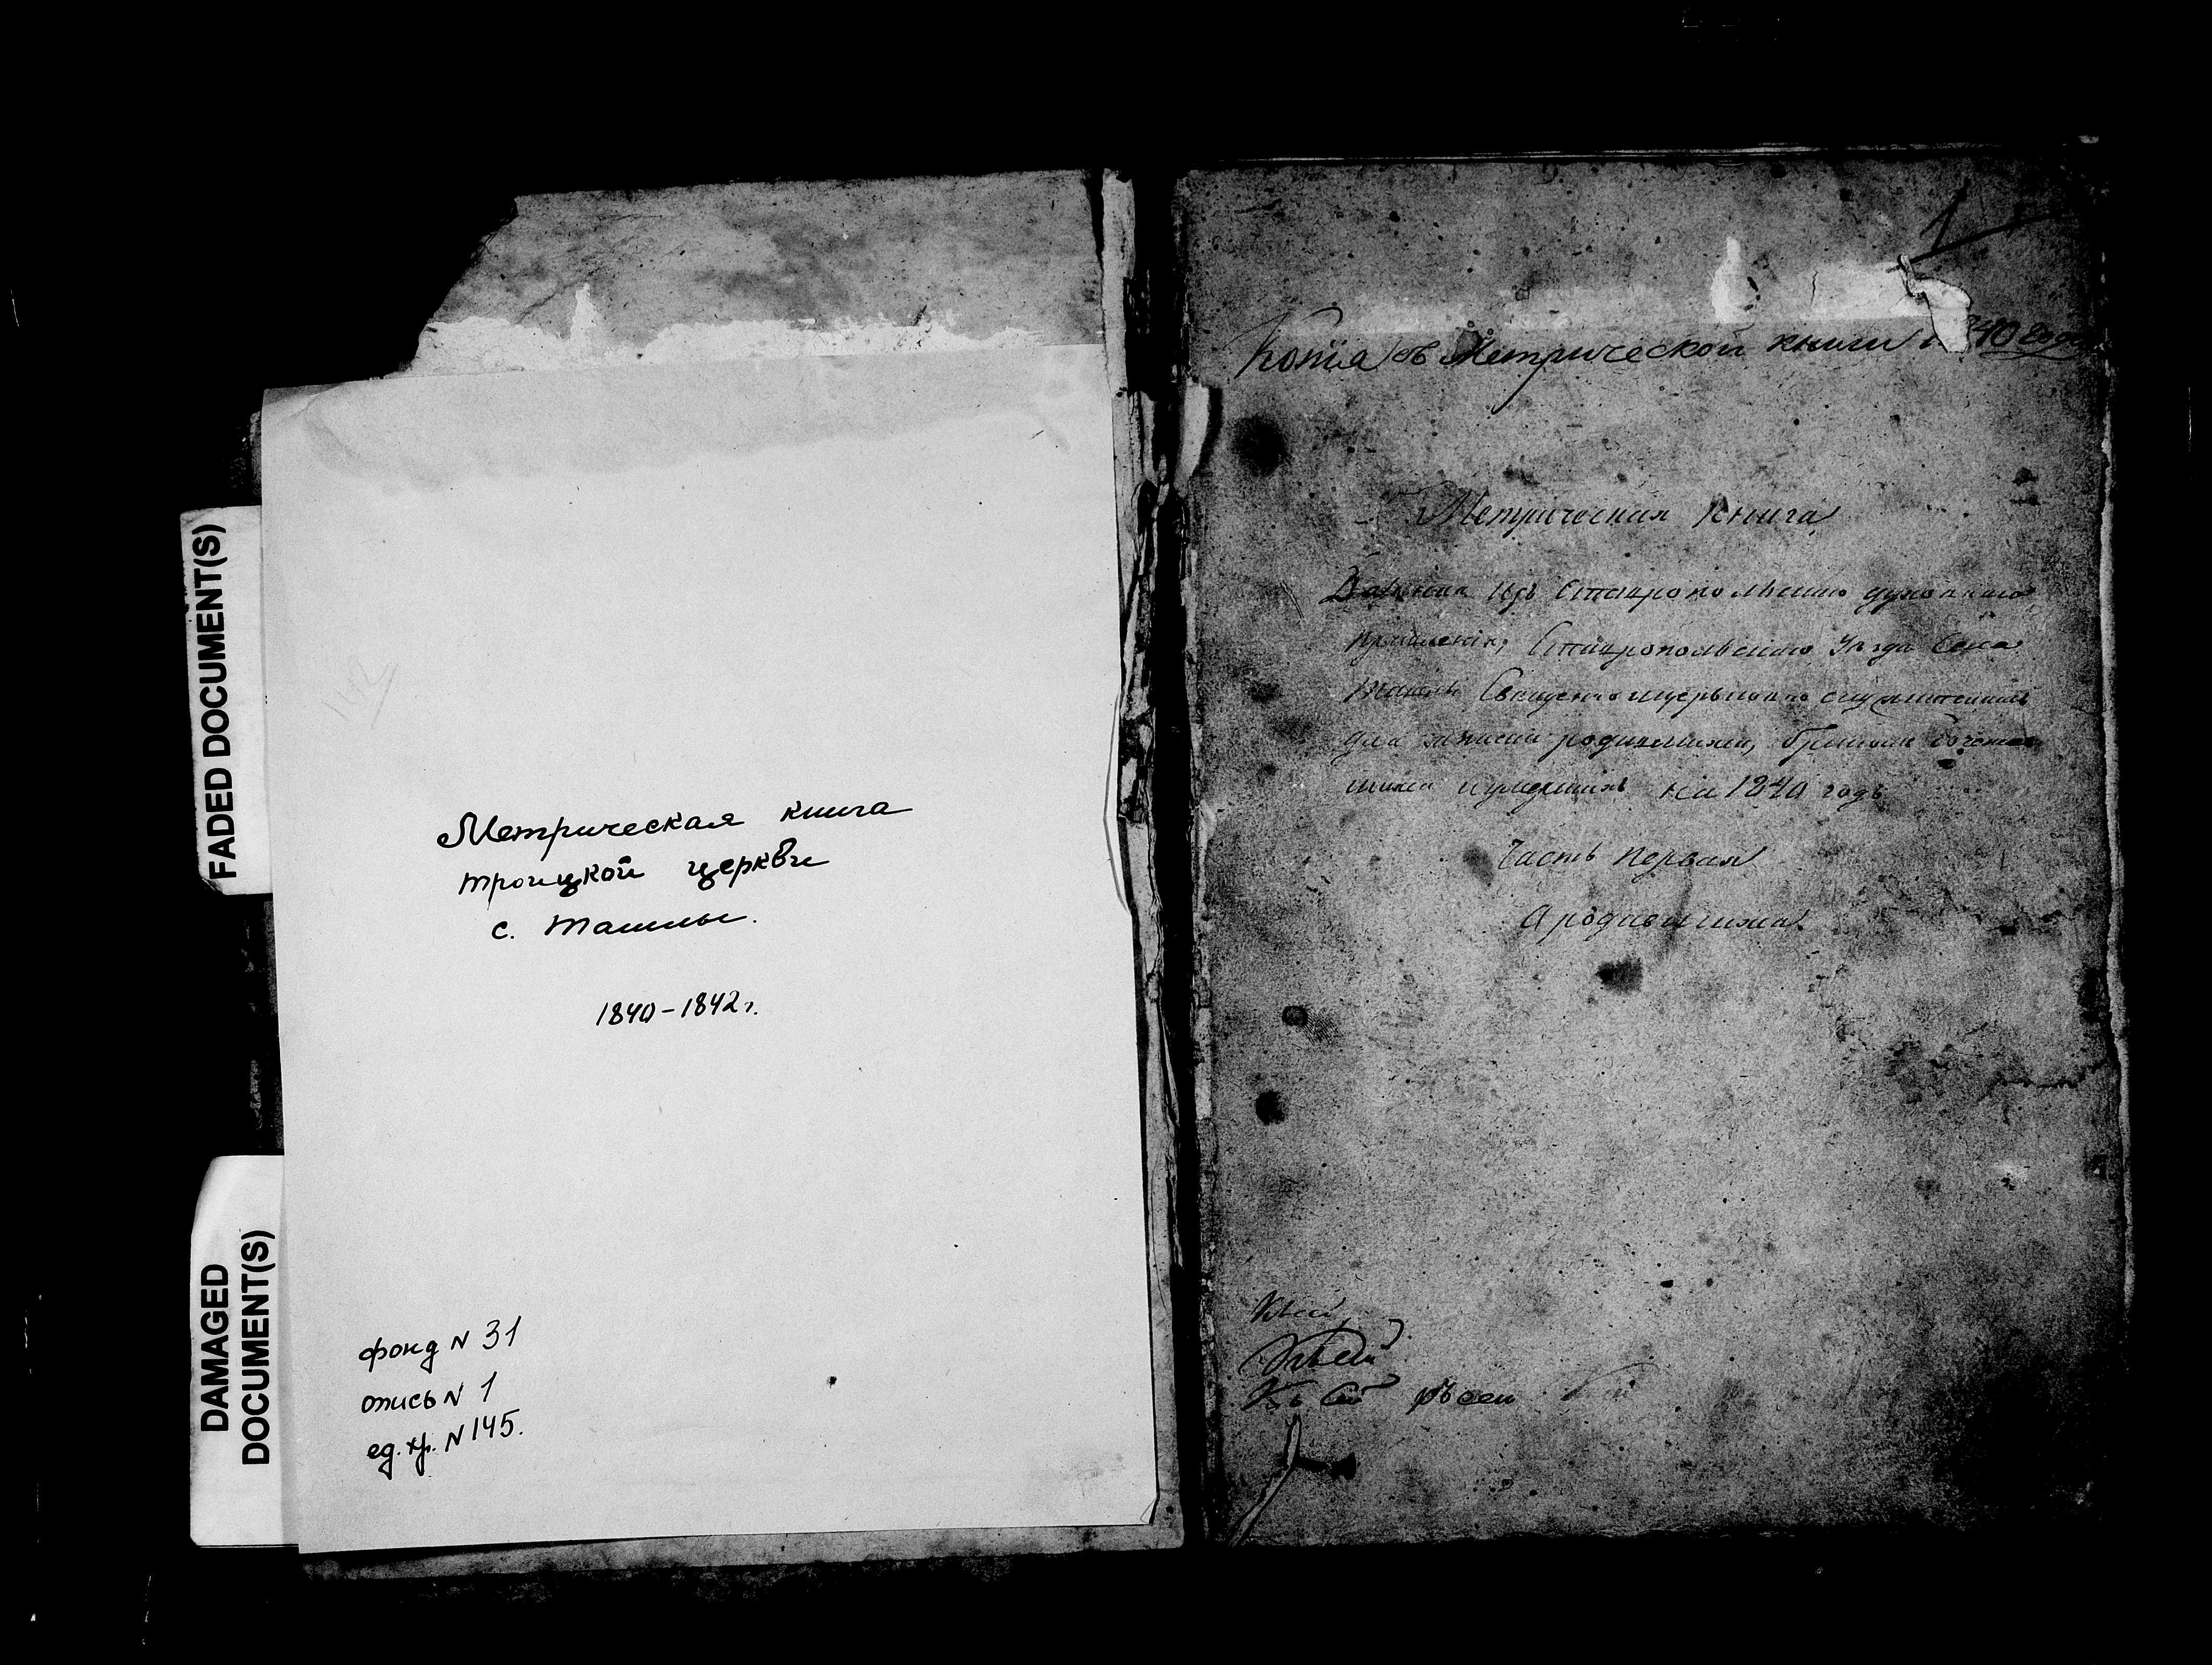 FADED DOCUMENT(S)
DAMAGED
DOCUMENT(S)
Метрическая книга
троицкой церкви
с. Ташлы.
1840-1842г.
фонд N 31
опись N 1
ед. хр. N 145.
1
Копїя съ Метрической книги 40 года
Метрическая Книга
Данная изъ Ставропольскаго духовнаго
правленія, Ставропольскаго уѣзда Села
Ташлы Священно церковно служителямъ
для записки родившихся, бракомъ сочетав
шихся и умершихъ на 1840 годъ
Часть первая
О родившихся.
Къ сей